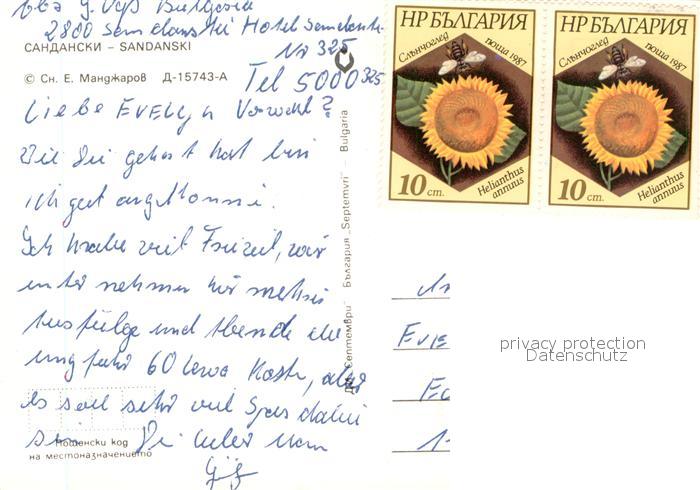 Bulgaria
2800 Hotel
САНДАНСКИ – SANDANSKI
Nr 325
© Сн. Е. Манджаров Д-15743-А
Tel 5000 325
Liebe EVELyn Vorwahl?
Wie Sie gehört hat bin
ich gut angekommen.
Ich habe viel Freizeit, wir
unternehmen hier mehrere
Ausflüge und Abende die
ungefähr 60 Lewa Kosten, aber
es soll sehr viel Spas dabei
sein
Пощенски код
на местоназначението
България „Септември" – Bulgaria
НР БЪЛГАРИЯ
Слънчоглед
поща 1987
10 ст.
Helianthus
annuus
НР БЪЛГАРИЯ
Слънчоглед
поща 1987
10 ст.
Helianthus
annuus
privacy protection
Datenschutz